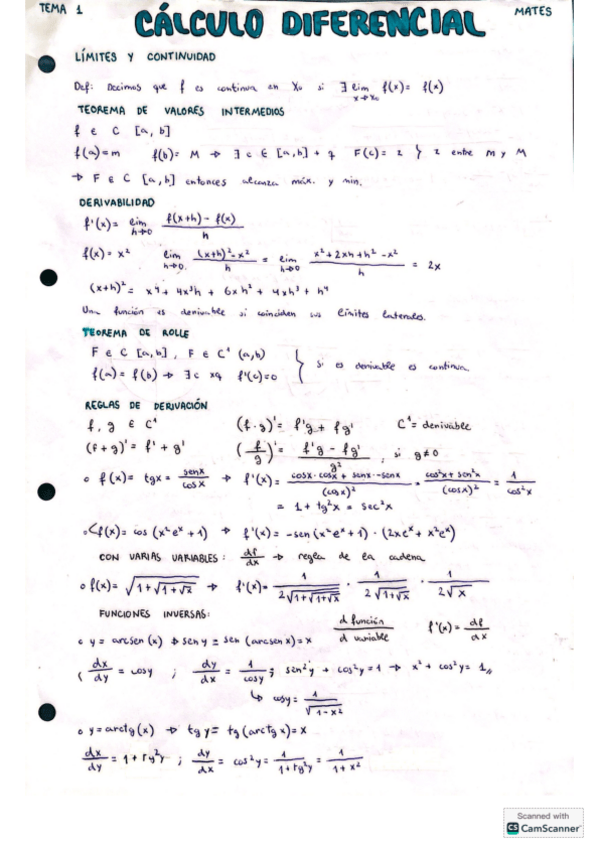 TEMA 1
CÁLCULO DIFERENCIAL
MATES
LÍMITES Y CONTINUIDAD
Def: Decimos que f es continua en X₀ si ∃ lim f(x) = f(x)
x→x₀
TEOREMA DE VALORES INTERMEDIOS
f ∈ C [a, b]
f(a) = m f(b) = M → ∃ c ∈ [a, b] + q F(c) = z } z entre m y M
→ F ∈ C [a, b] entonces alcanza máx. y min.
DERIVABILIDAD
f'(x) = lim h→0 f(x+h) - f(x) / h
f(x) = x² lim h→0. (x+h)² - x² / h = lim h→0 x² + 2xh + h² - x² / h = 2x
(x+h)² = x⁴ + 4x³h + 6xh² + 4xh³ + h⁴
Una función es derivable si coinciden sus límites laterales.
TEOREMA DE ROLLE
F ∈ C [a, b], F ∈ C¹ (a, b)
f(a) = f(b) → ∃ c xq f'(c) = 0 } si es derivable es continua.
REGLAS DE DERIVACIÓN
f, g ∈ C¹ (f · g)' = f'g + fg' C¹ = derivable
(f + g)' = f' + g' (f/g)' = f'g - fg' / g², si g ≠ 0
o f(x) = tgx = senx / cosx → f'(x) = cosx · cosx + senx · -senx / (cosx)² = cos²x + sen²x / (cosx)² = 1 / cos²x
= 1 + tg²x = sec²x
f(x) = cos (x²eˣ + 1) → f'(x) = -sen (x²eˣ + 1) · (2xeˣ + x²eˣ)
CON VARIAS VARIABLES: df/dx → regla de la cadena
o f(x) = √(1+√(1+√x)) → f'(x) = 1 / 2√(1+√(1+√x)) · 1 / 2√(1+√x) · 1 / 2√x
FUNCIONES INVERSAS: d función / d variable f'(x) = df/dx
o y = arcsen(x) → sen y = sen (arcsen x) = x
dx/dy = cosy ; dy/dx = 1/cosy ; sen²y + cos²y = 1 → x² + cos²y = 1
↳ cosy = 1 / √(1-x²)
o y = arctg(x) → tg y = tg (arctg x) = x
dx/dy = 1 + tg²y ; dy/dx = cos²y = 1 / 1+tg²y = 1 / 1+x²
Scanned with
CS CamScanner